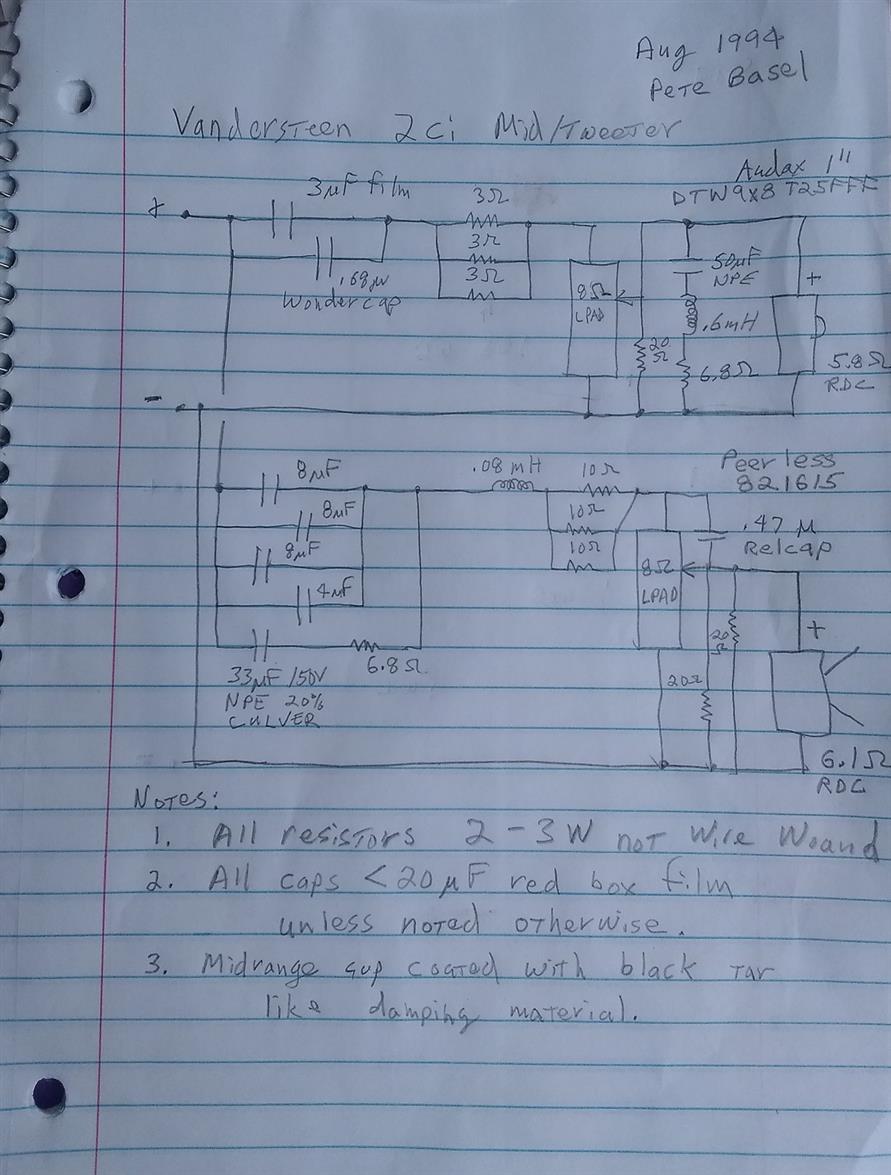 Aug 1994
Pete Basel
Vandersteen 2ci Mid/Tweeter
Audax 1"
DTW9X8 T25FFF
3μF film
3Ω
3Ω
3Ω
+
.68μ
Wondercap
8Ω
LPAD
50μF
NPE
+
.6mH
20
Ω
6.8Ω
5.8Ω
RDC
-
8μF
8μF
8μF
4μF
33μF/50V
NPE 20%
CULVER
6.8Ω
.08mH
10Ω
10Ω
10Ω
Peerless
821615
.47μ
Relcap
8Ω
LPAD
20
Ω
20Ω
+
6.1Ω
RDC
Notes:
1. All resistors 2-3W not wire wound
2. All caps <20μF red box film
unless noted otherwise.
3. Midrange cup coated with black tar
like damping material.